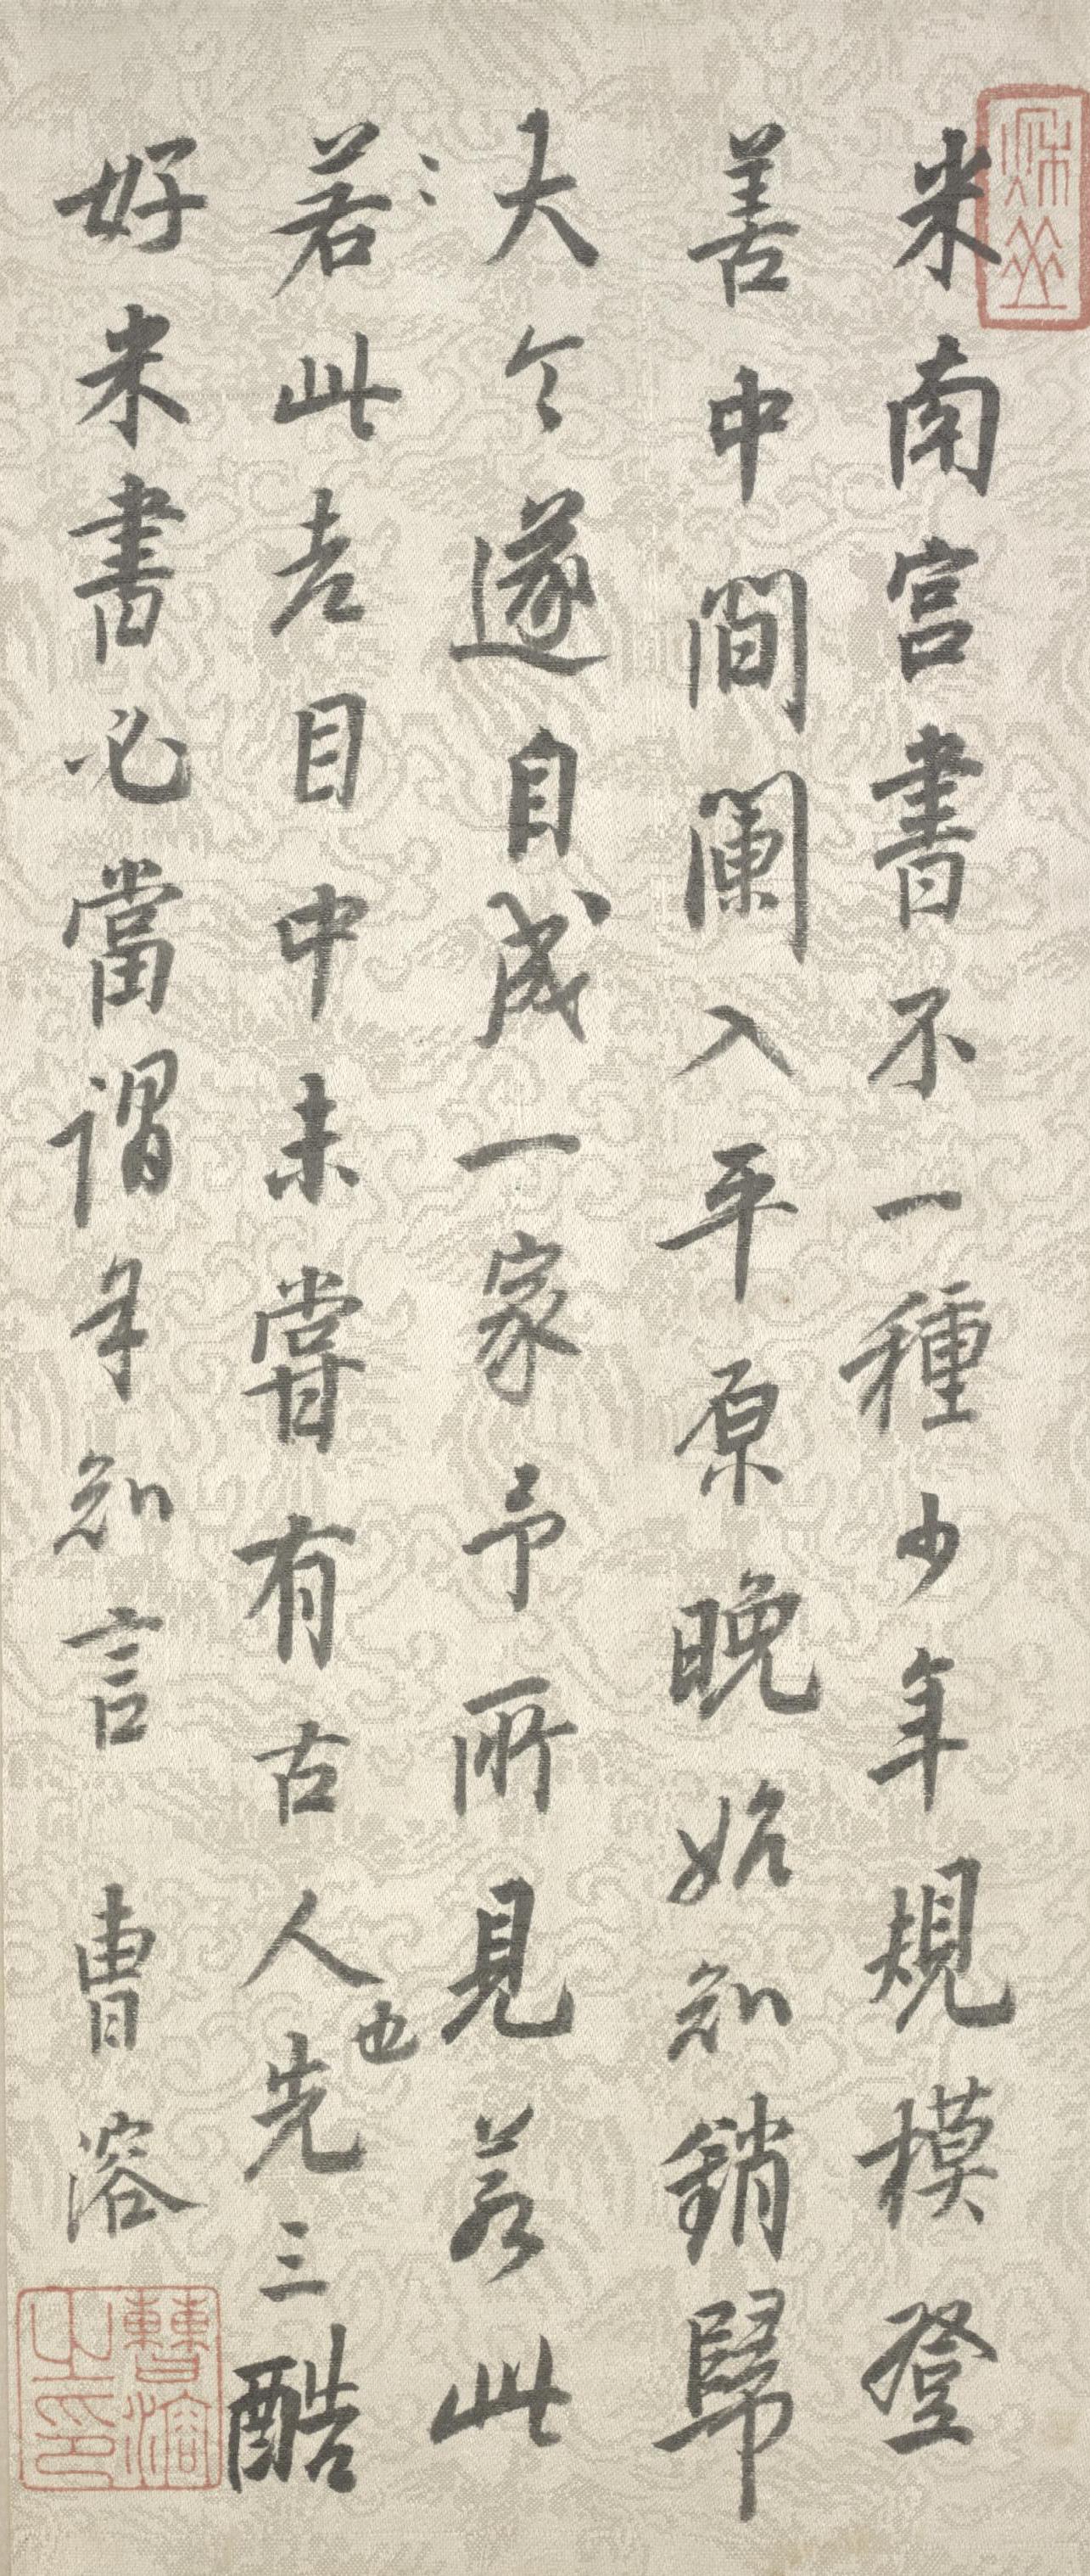 米南宮書不一種少年規模登
善中間闌入平原晚始知銷歸
大令遂自成一家予所見若此
若此老目中未嘗有古人也先三酷
好米書必當謂知言 曹溶
曹溶之印